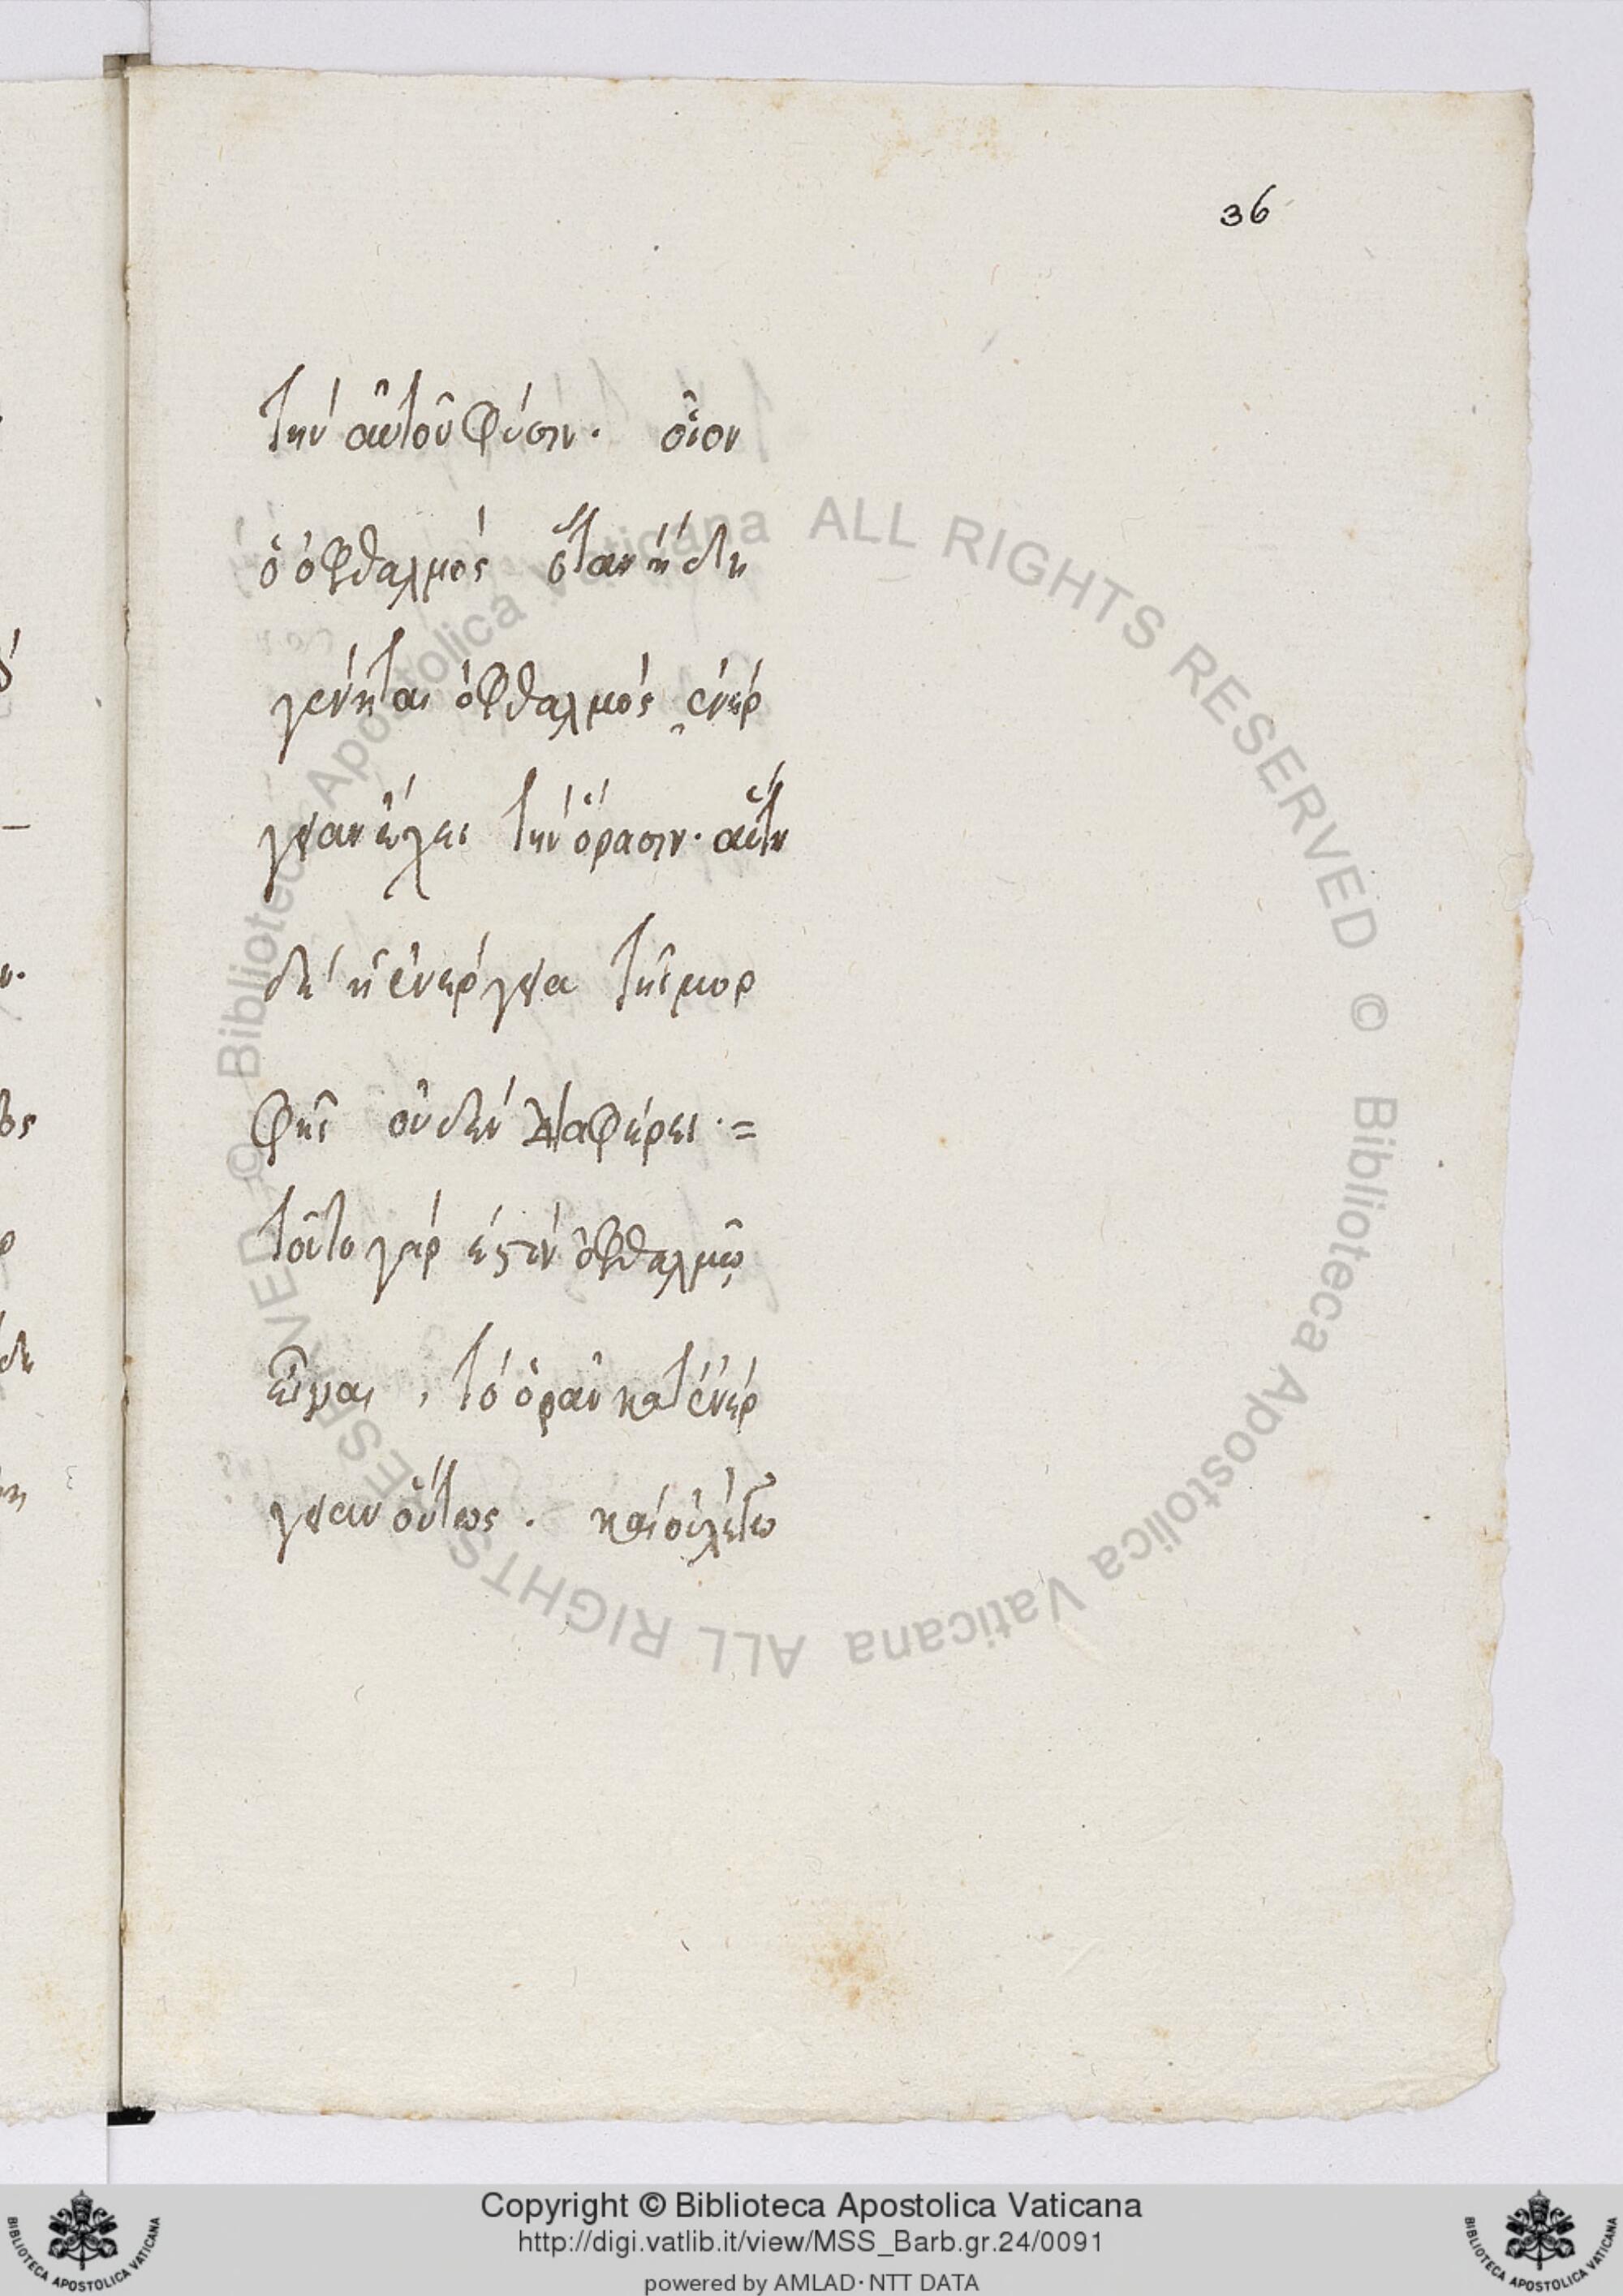 36
τὴν αὑτοῦ φύσιν· οἷον
ὁ ὀφθαλμὸς ὅταν ἤδη
γένηται ὀφθαλμός ἐνέρ
γειαν ἔχει τὴν ὅρασιν· αὕτη
δὲ ἡ ἐνέργεια τῆς μορ
φῆς οὐδὲν διαφέρει·=
τοῦτο γάρ ἐστιν ὀφθαλμῷ
εἶναι, τὸ ὁρᾶν κατ ἐνέρ
γειαν οὕτως. καὶ
© Biblioteca Apostolica Vaticana ALL RIGHTS RESERVED © Biblioteca Apostolica Vaticana ALL RIGHTS RESERVED
Copyright © Biblioteca Apostolica Vaticana
http://digi.vatlib.it/view/MSS_Barb.gr.24/0091
powered by AMLAD·NTT DATA
BIBLIOTECA APOSTOLICA VATICANA
BIBLIOTECA APOSTOLICA VATICANA